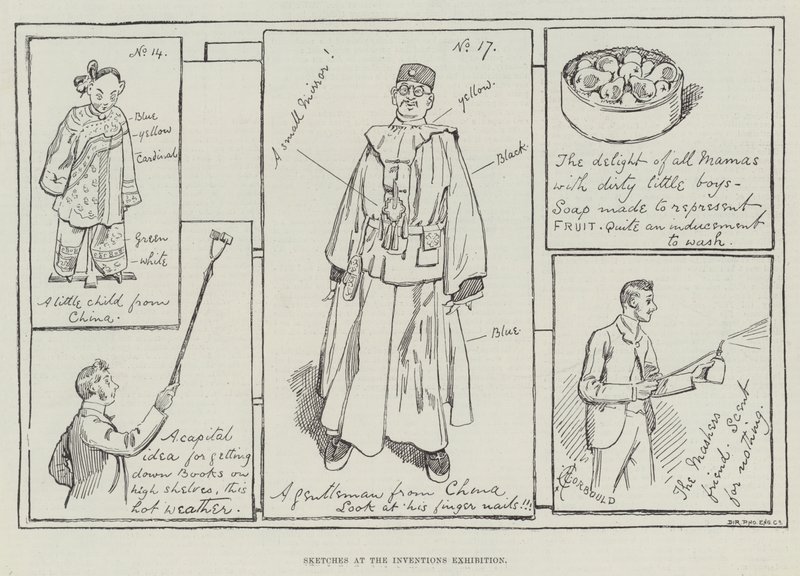 No 14.
Blue
yellow
Cardinal
Green
white
A little child from
China.
A capital
idea for getting
down Books on
high shelves, this
hot weather.
No 17.
A small mirror!
yellow.
Black.
Blue.
A gentleman from China
Look at his finger nails!!!
The delight of all Mamas
with dirty little boys-
Soap made to represent
FRUIT. Quite an inducement
to wash.
The Mashers
friend. Scent
for nothing.
CORBOULD
DIR. PHO. ENG. Co.
SKETCHES AT THE INVENTIONS EXHIBITION.